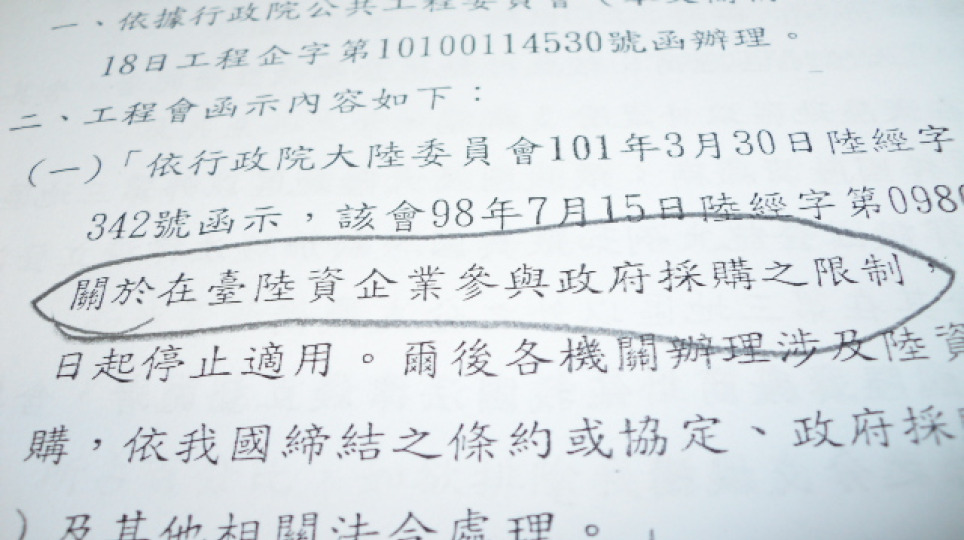 一、依據行政院公共工程委員會（
18日工程企字第10100114530號函辦理。
二、工程會函示內容如下：
(一)「依行政院大陸委員會101年3月30日陸經字
342號函示，該會98年7月15日陸經字第098
關於在臺陸資企業參與政府採購之限制，
日起停止適用。爾後各機關辦理涉及陸資
購，依我國締結之條約或協定、政府採
）及其他相關法令處理。」